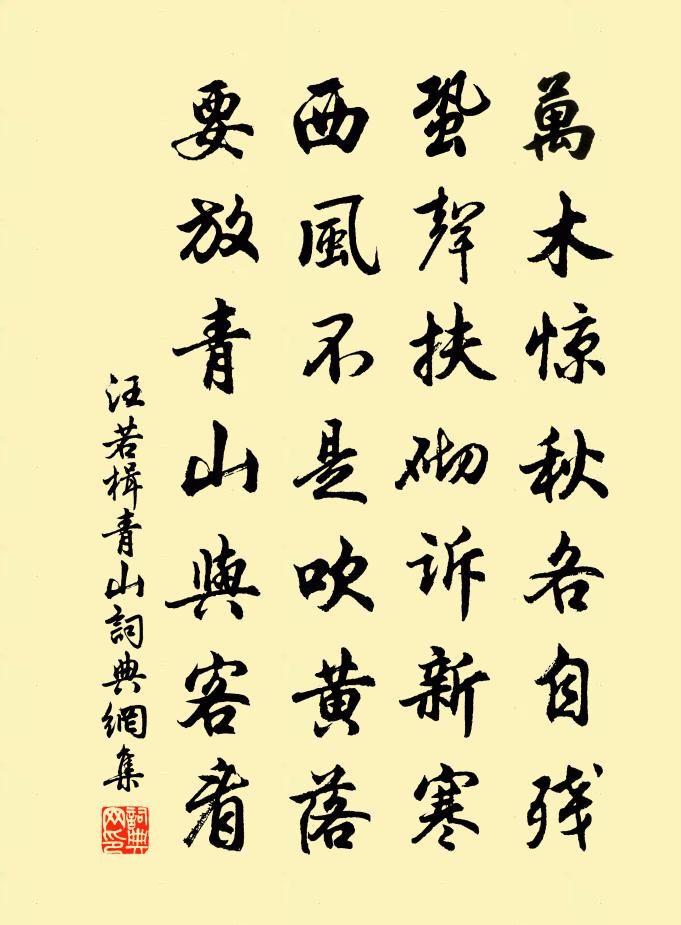 萬木惊秋各自残
蛩聲扶砌诉新寒
西風不是吹黄落
要放青山與客看
汪若楫青山詞典網集
詞典网印